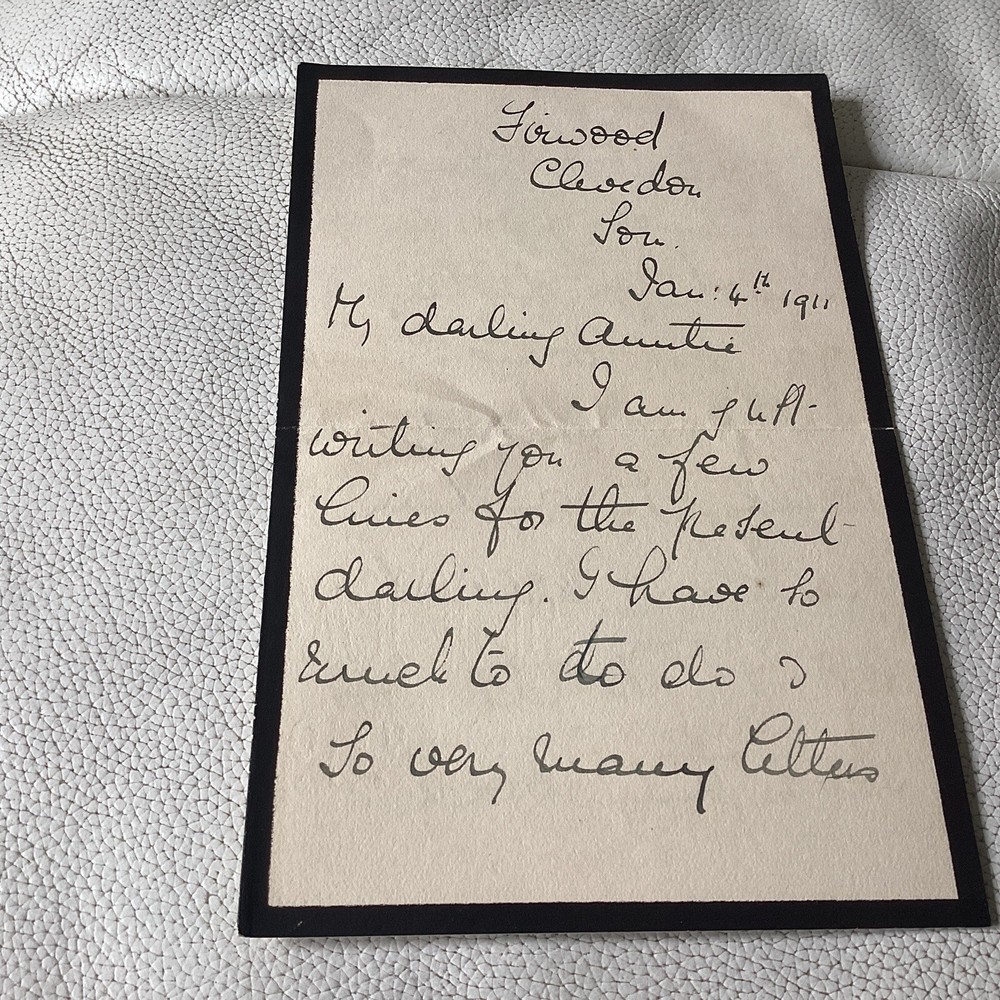 Firwood
Clevedon
Som.
Jan: 4th 1911
My darling Auntie
I am just
writing you a few
lines for the present
darling. I have so
much to to do &
So very many letters